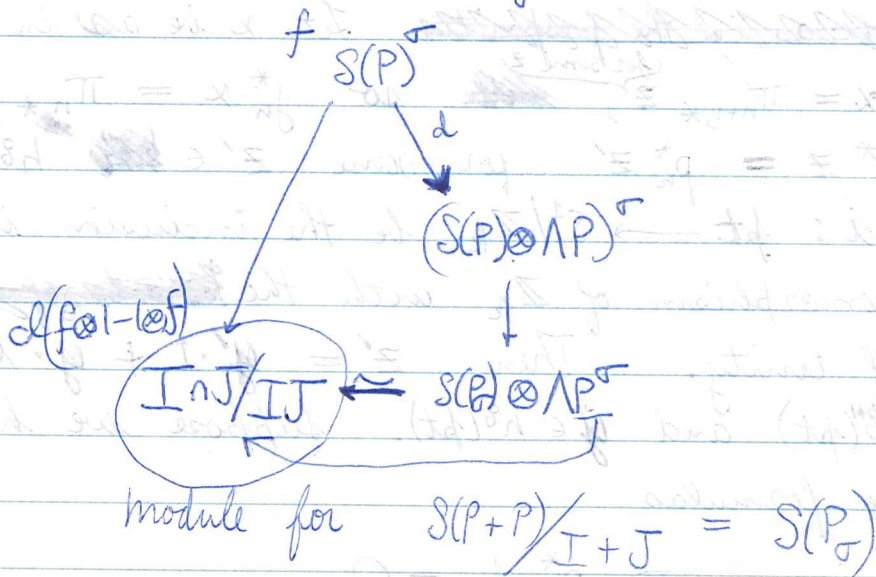 f
S(P)^σ
d
(S(P)⊗ΛP)^σ
d(f⊗1-1⊗f)
I∩J/IJ ⥲ S(P_σ)⊗ΛP^σ
module for S(P+P)/I+J = S(P_σ)